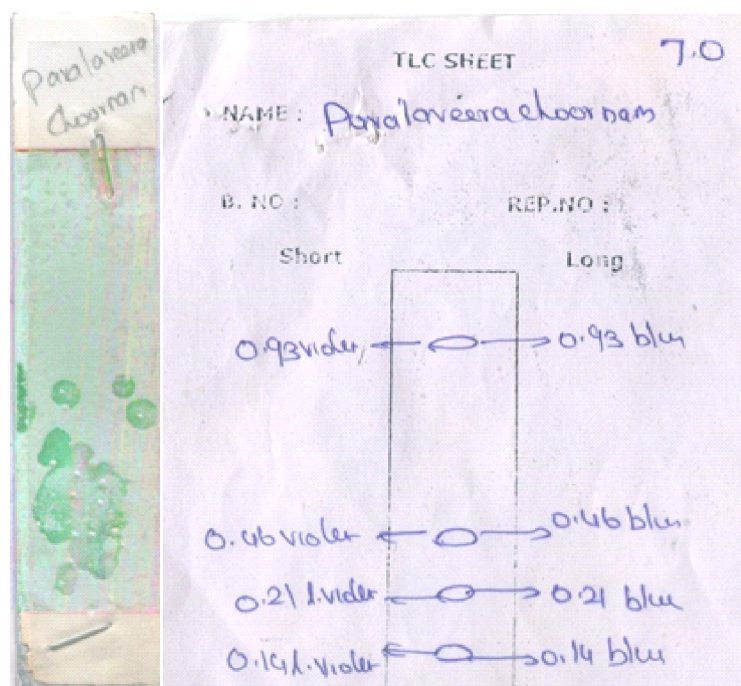 Pavalaveera
Choornam
TLC SHEET
7.0
NAME : Pavalaveera choornam
B. NO :
REP.NO :
Short
Long
0.93 violet
0.93 blue
0.46 violet
0.46 blue
0.21 l.violet
0.21 blue
0.14 l.violet
0.14 blue